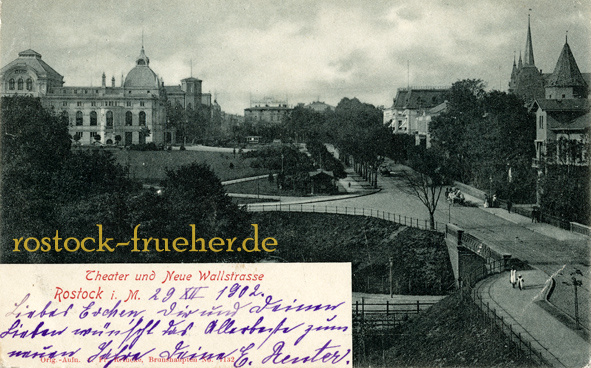 rostock-frueher.de
Theater und Neue Wallstrasse
Rostock i. M. 29 XII 1902.
Liebes Evchen, Dir und Deinen
Lieben wünscht das Allerbeste zum
neuen Jahre Deine E. Reuter.
Orig.-Aufn. Brunshaupten No.